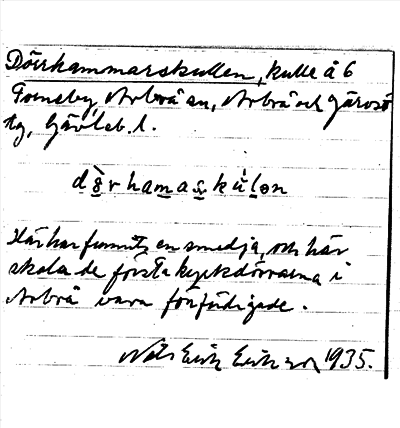 Dörrhammarskullen, kulle å 6
Forneby, Arbrå sn, Arbrå och Järvsö
tg, Gävleb. l.
dö̀rhamaskúlən
Här har funnits en smedja, och här
skola de första kyrkdörrarna i
Arbrå vara förfärdigade.
Nils Erik Eriksson 1935.